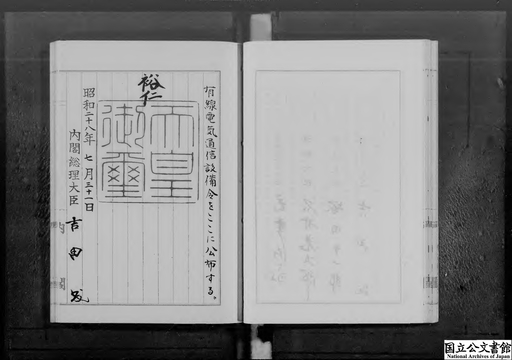 有線電気通信設備令をここに公布する。
裕仁
天皇御璽
昭和二十八年七月三十一日
内閣総理大臣 吉田茂
国立公文書館
National Archives of Japan